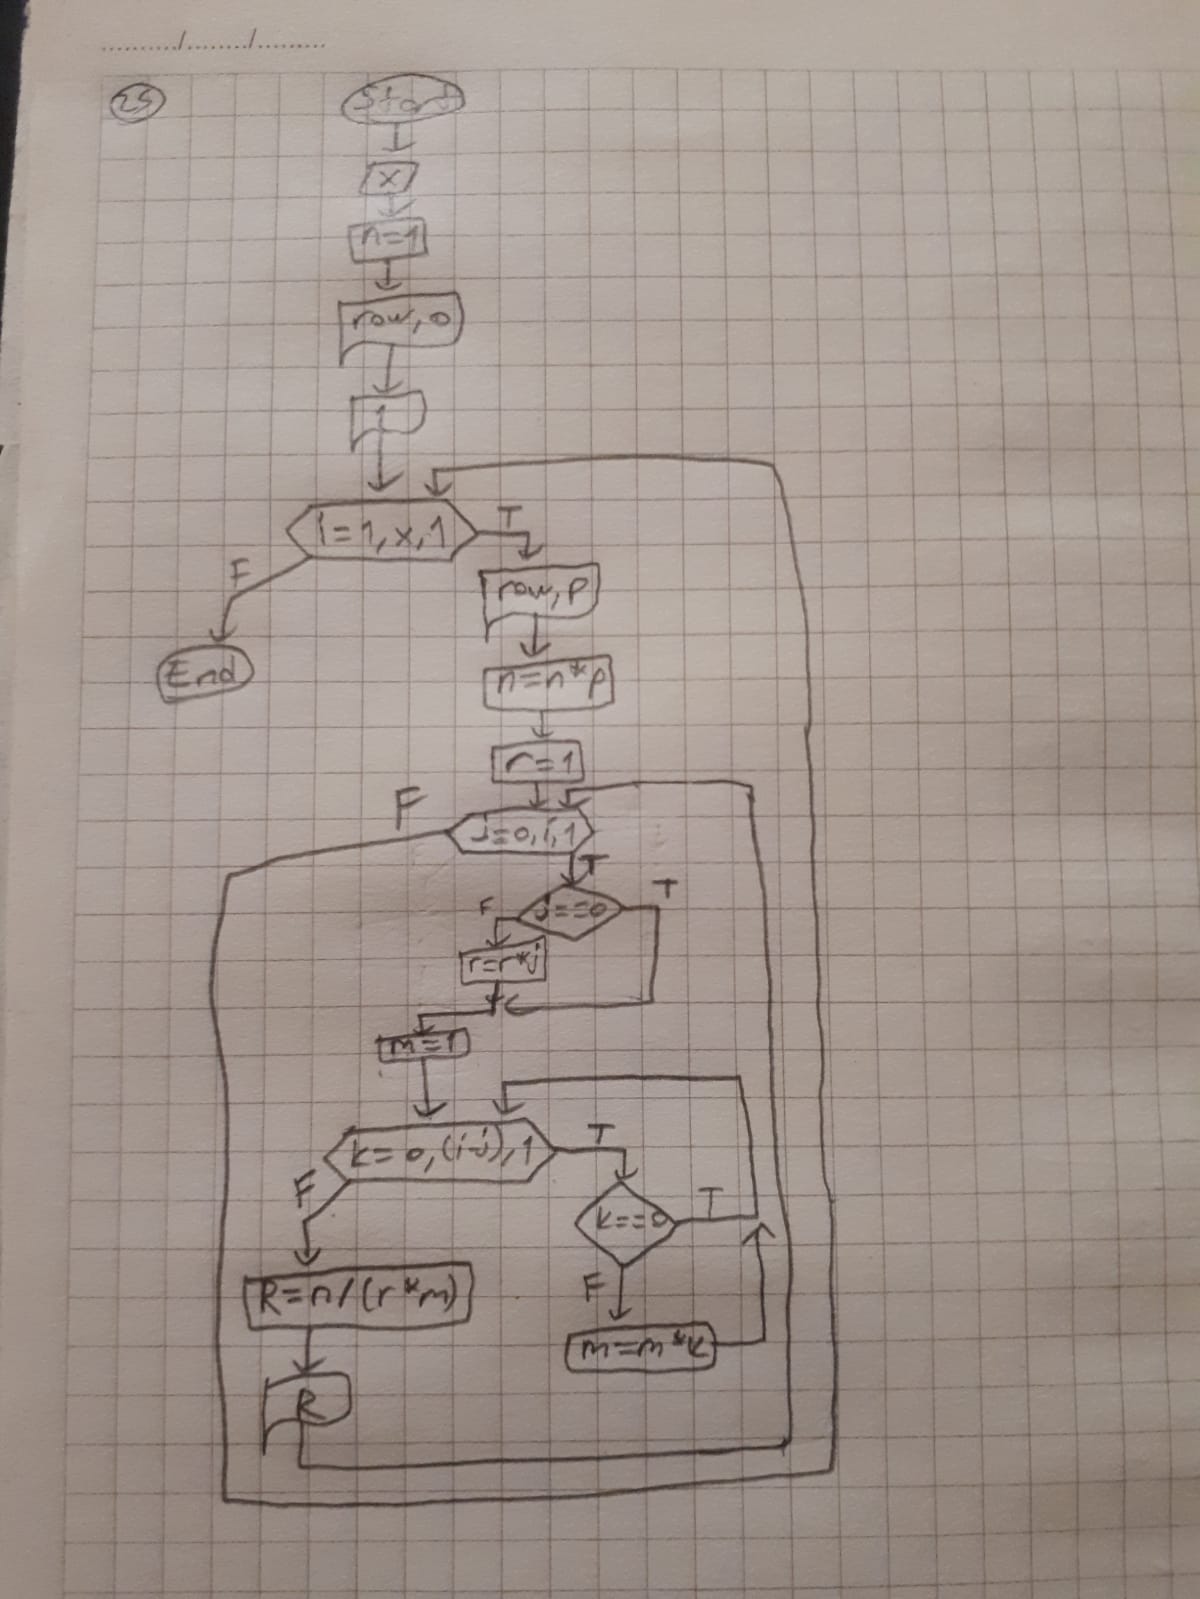 ........../........./..........
25
Start
x
n=1
row, 0
1
i=1, x, 1
T
F
row, p
End
n=n*p
r=1
F
j=0, i, 1
T
T
F
j==0
r=r*j
m=1
T
k=0, (i-j), 1
F
T
k==0
F
R=n/(r*m)
m=m*k
R